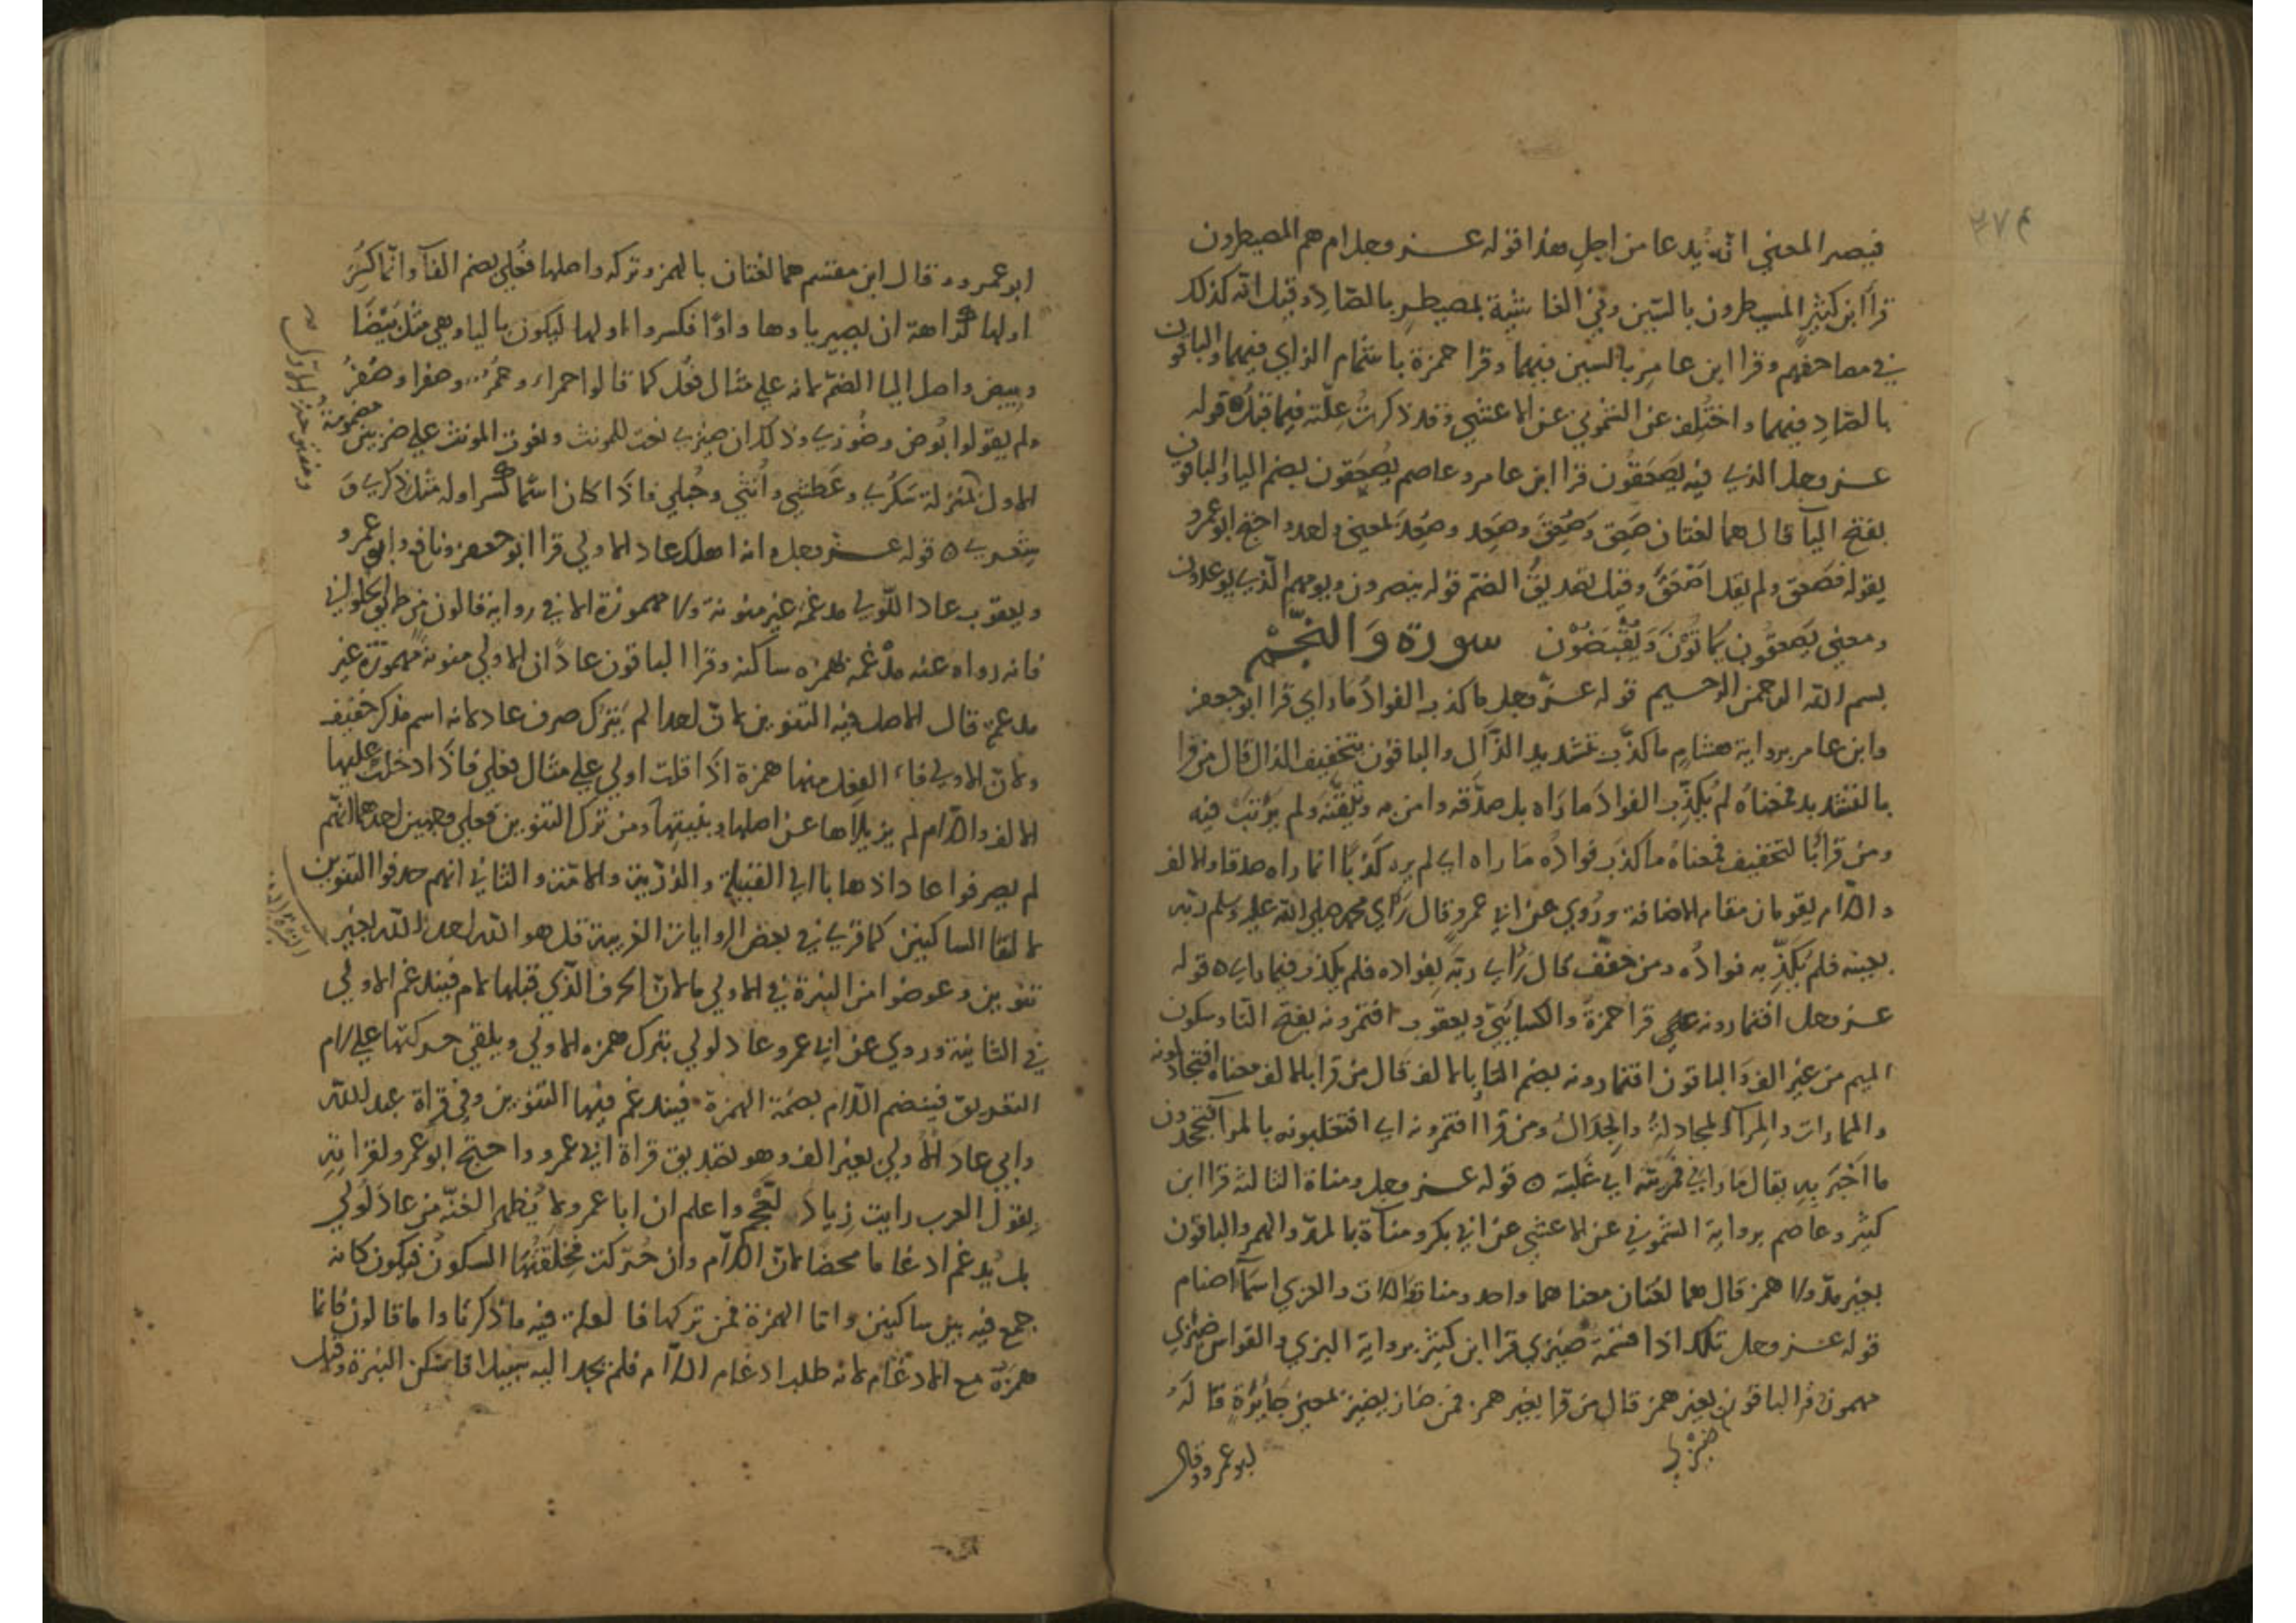 ٣٧٤
فيصير المعنى انه يدعا من اجل هذا قوله عز وجل ام هم المصيطرون
قرا ابن كثير المسيطرون بالسين وفي الغاشية بمصيطر بالصاد وقيل انه كذلك
في مصاحفهم وقرا ابن عامر بالسين فيهما وقرا حمزة باشمام الزاي فيهما والباقون
بالصاد فيهما واختلف عن الشموني عن الاعشى وقد ذكرت علته فيما قبل ٥ قوله
عز وجل الذي فيه يصعقون قرا ابن عامر وعاصم يُصعقون بضم الياء والباقون
بفتح اليآ قال هما لغتان صَعِق وصُعِقَ وصَعِد وصُعِدَ بمعنى واحد واحتج ابو عمرو
بقوله فصعق ولم يقل اصعق وقيل تصديق الضم قوله ينصرون ويومهم الذي يوعدون
ومعنى يصعقون يماتون ويقبضون سورة والنجم
بسم الله الرحمن الرحيم قوله عز وجل ما كذب الفواد ما راي قرا ابو جعفر
وابن عامر برواية هشام ما كذّب بتشديد الذال والباقون بتخفيف الذال قال من قرا
بالتشديد فمعناه لم يُكذّب الفواد ما راه بل صدّقه وامن به وتيقنه ولم يرتب فيه
ومن قرا بالتخفيف فمعناه ما كذب فواده ما راه اي لم ير كذبا انما راه صدقا والالف
واللام يقومان مقام الاضافة وروي عن ابي عمرو قال راي محمد صلي الله عليه وسلم ربه
بعينه فلم يكذّبه فواده ومن خفّف قال راي ربه بفواده فلم يكذب فيما راي ٥ قوله
عز وجل افتمارونه علي قرا حمزة والكسائي ويعقوب افتمرونه بفتح التا وسكون
الميم من غير الف والباقون افتمارونه بضم التا بالالف قال من قرا بالالف معناه افتجادلونه
والممارات والمرآ المجادلة والجدال ومن قرا افتمرونه اي افتغلبونه بالمرآ افتجحدون
ما اخبر به يقال ماراني فمريته اي غلبته ٥ قوله عز وجل ومناة الثالثة قرا ابن
كثير وعاصم برواية الشموني عن الاعشى عن ابي بكر ومنآة بالمد والهمز والباقون
بغير مدّ ولا همز قال هما لغتان معناهما واحد ومناة واللات والعزي اسمآ اصنام
قوله عز وجل تلك اذا قسمة ضيزي قرا ابن كثير برواية البزي والقواس ضيزي
مهموز قرا الباقون بغير همز قال من قرا بغير همز فمن ضاز يضيز بمعنى جائرة قاله
ضيزي
ابو عمرو وقال
ابو عمرو وقال ابن مقسم هما لغتان بالهمز وتركه واصلها فُعلي بضم الفآ وانما كسر
اولها كراهة ان يصير ياوها واوًا فكسروا اولها ليكون بالياء وهي مثل بيضا
وبيض واصل اليا الضم لانه علي مثال فُعْل كما قالوا حمراء وحمر وصفرا وصفر
ولم يقولوا بُوض وضُوزي وذلك ان ضيزي نعت للمونث ونعوت المونث علي ضربين مضمومة
ومفتوحة الاول
الاول بمنزلة سكري وعطشي وانثي وحبلي فاذا كان اسما كسر اوله مثل ذكري و
شعري ٥ قوله عز وجل وانه اهلك عادا الاولي قرا ابو جعفر ونافع وابو عمرو
ويعقوب عادا اللولي مدغمة غير منونة ولا مهموزة الا في رواية قالون من طريق الحلواني
فانه رواه عنه مدغمة بهمزه ساكنة وقرا الباقون عادًا ان الاولي منونة مهموزة غير
مدغمة قال الاصل فيه التنوين لان احدا لم يترك صرف عاد لانه اسم مذكر خفيف
ولان الاولي فاء الفعل منها همزة اذا قلت اولي علي مثال فعلي فاذا ادخلت عليها
الالف واللام لم يزيلاها عن اصلها وبنيتها ومن ترك التنوين فعلي وجهين احدهما انهم
لم يصرفوا عادا ذهابا الي القبيلة والذرّية والامة والثاني انهم حذفوا التنوين
لالتقا الساكنين كما قري في بعض الروايات الغريبة قل هو الله احد الله بغير
تنوين وعوضوا من النبرة في الاولي لاما لان الحرف الذي قبلها لام فيندغم الاولي
في الثانية وروي عن ابي عمرو عاد لولي بترك همزه الاولي ويلقي حركتها علي لام
التعريف فينضم اللام بضمة الهمزة فيندغم فيها التنوين وفي قراة عبد الله
وابي عادَ الاولي بغير الف وهو تصديق قراة ابي عمرو واحتج ابو عمرو لقرايته
بقول العرب رايت زياد لعجم واعلم ان ابا عمرو لا يُظهر الغنة من عاد لولي
بل يدغم ادغاما محضا لان اللام وان حركت فخلقتها السكون فيكون كانه
جمع فيه بين ساكنين واما الهمزة فمن تركها فالعلة فيه ما ذكرنا واما قالون فانما
همزه مع الادغام لانه طلب ادغام اللام فلم يجد اليه سبيلا فاسكن النبرة وقيل